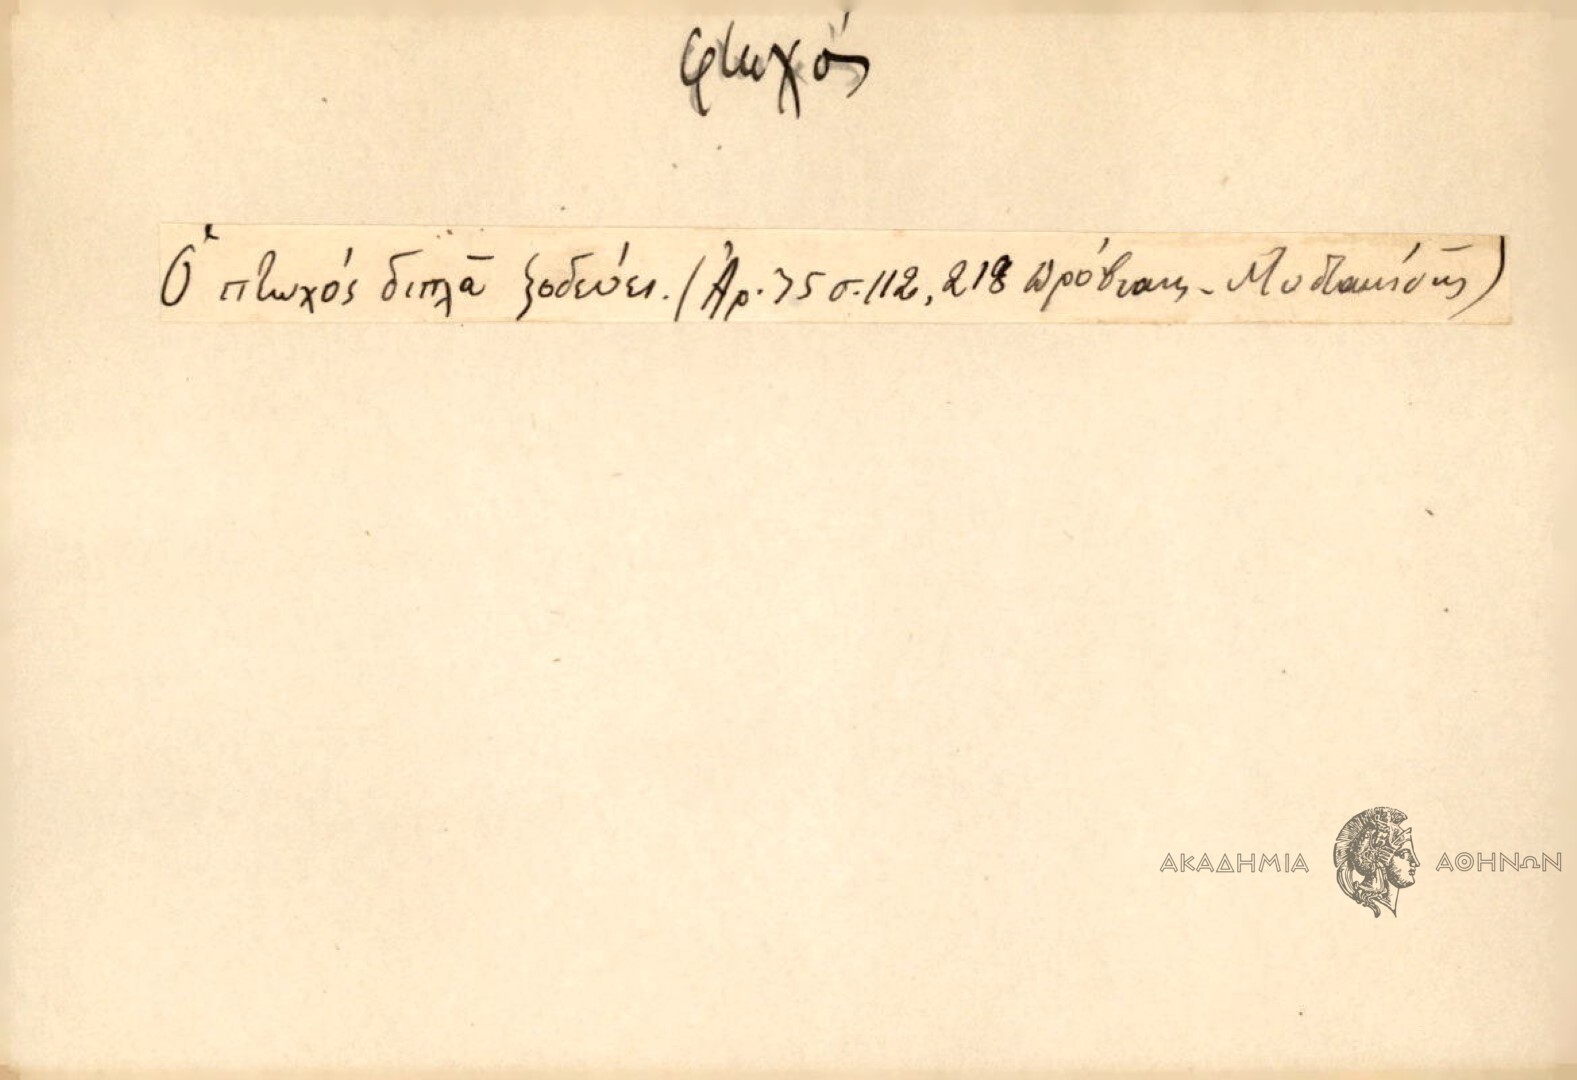 φτωχός
Ὁ πτωχός διπλᾶ ξοδεύει. (Ἀρ. 75 σ. 112, 218
ΑΚΑΔΗΜΙΑ ΑΘΗΝΩΝ